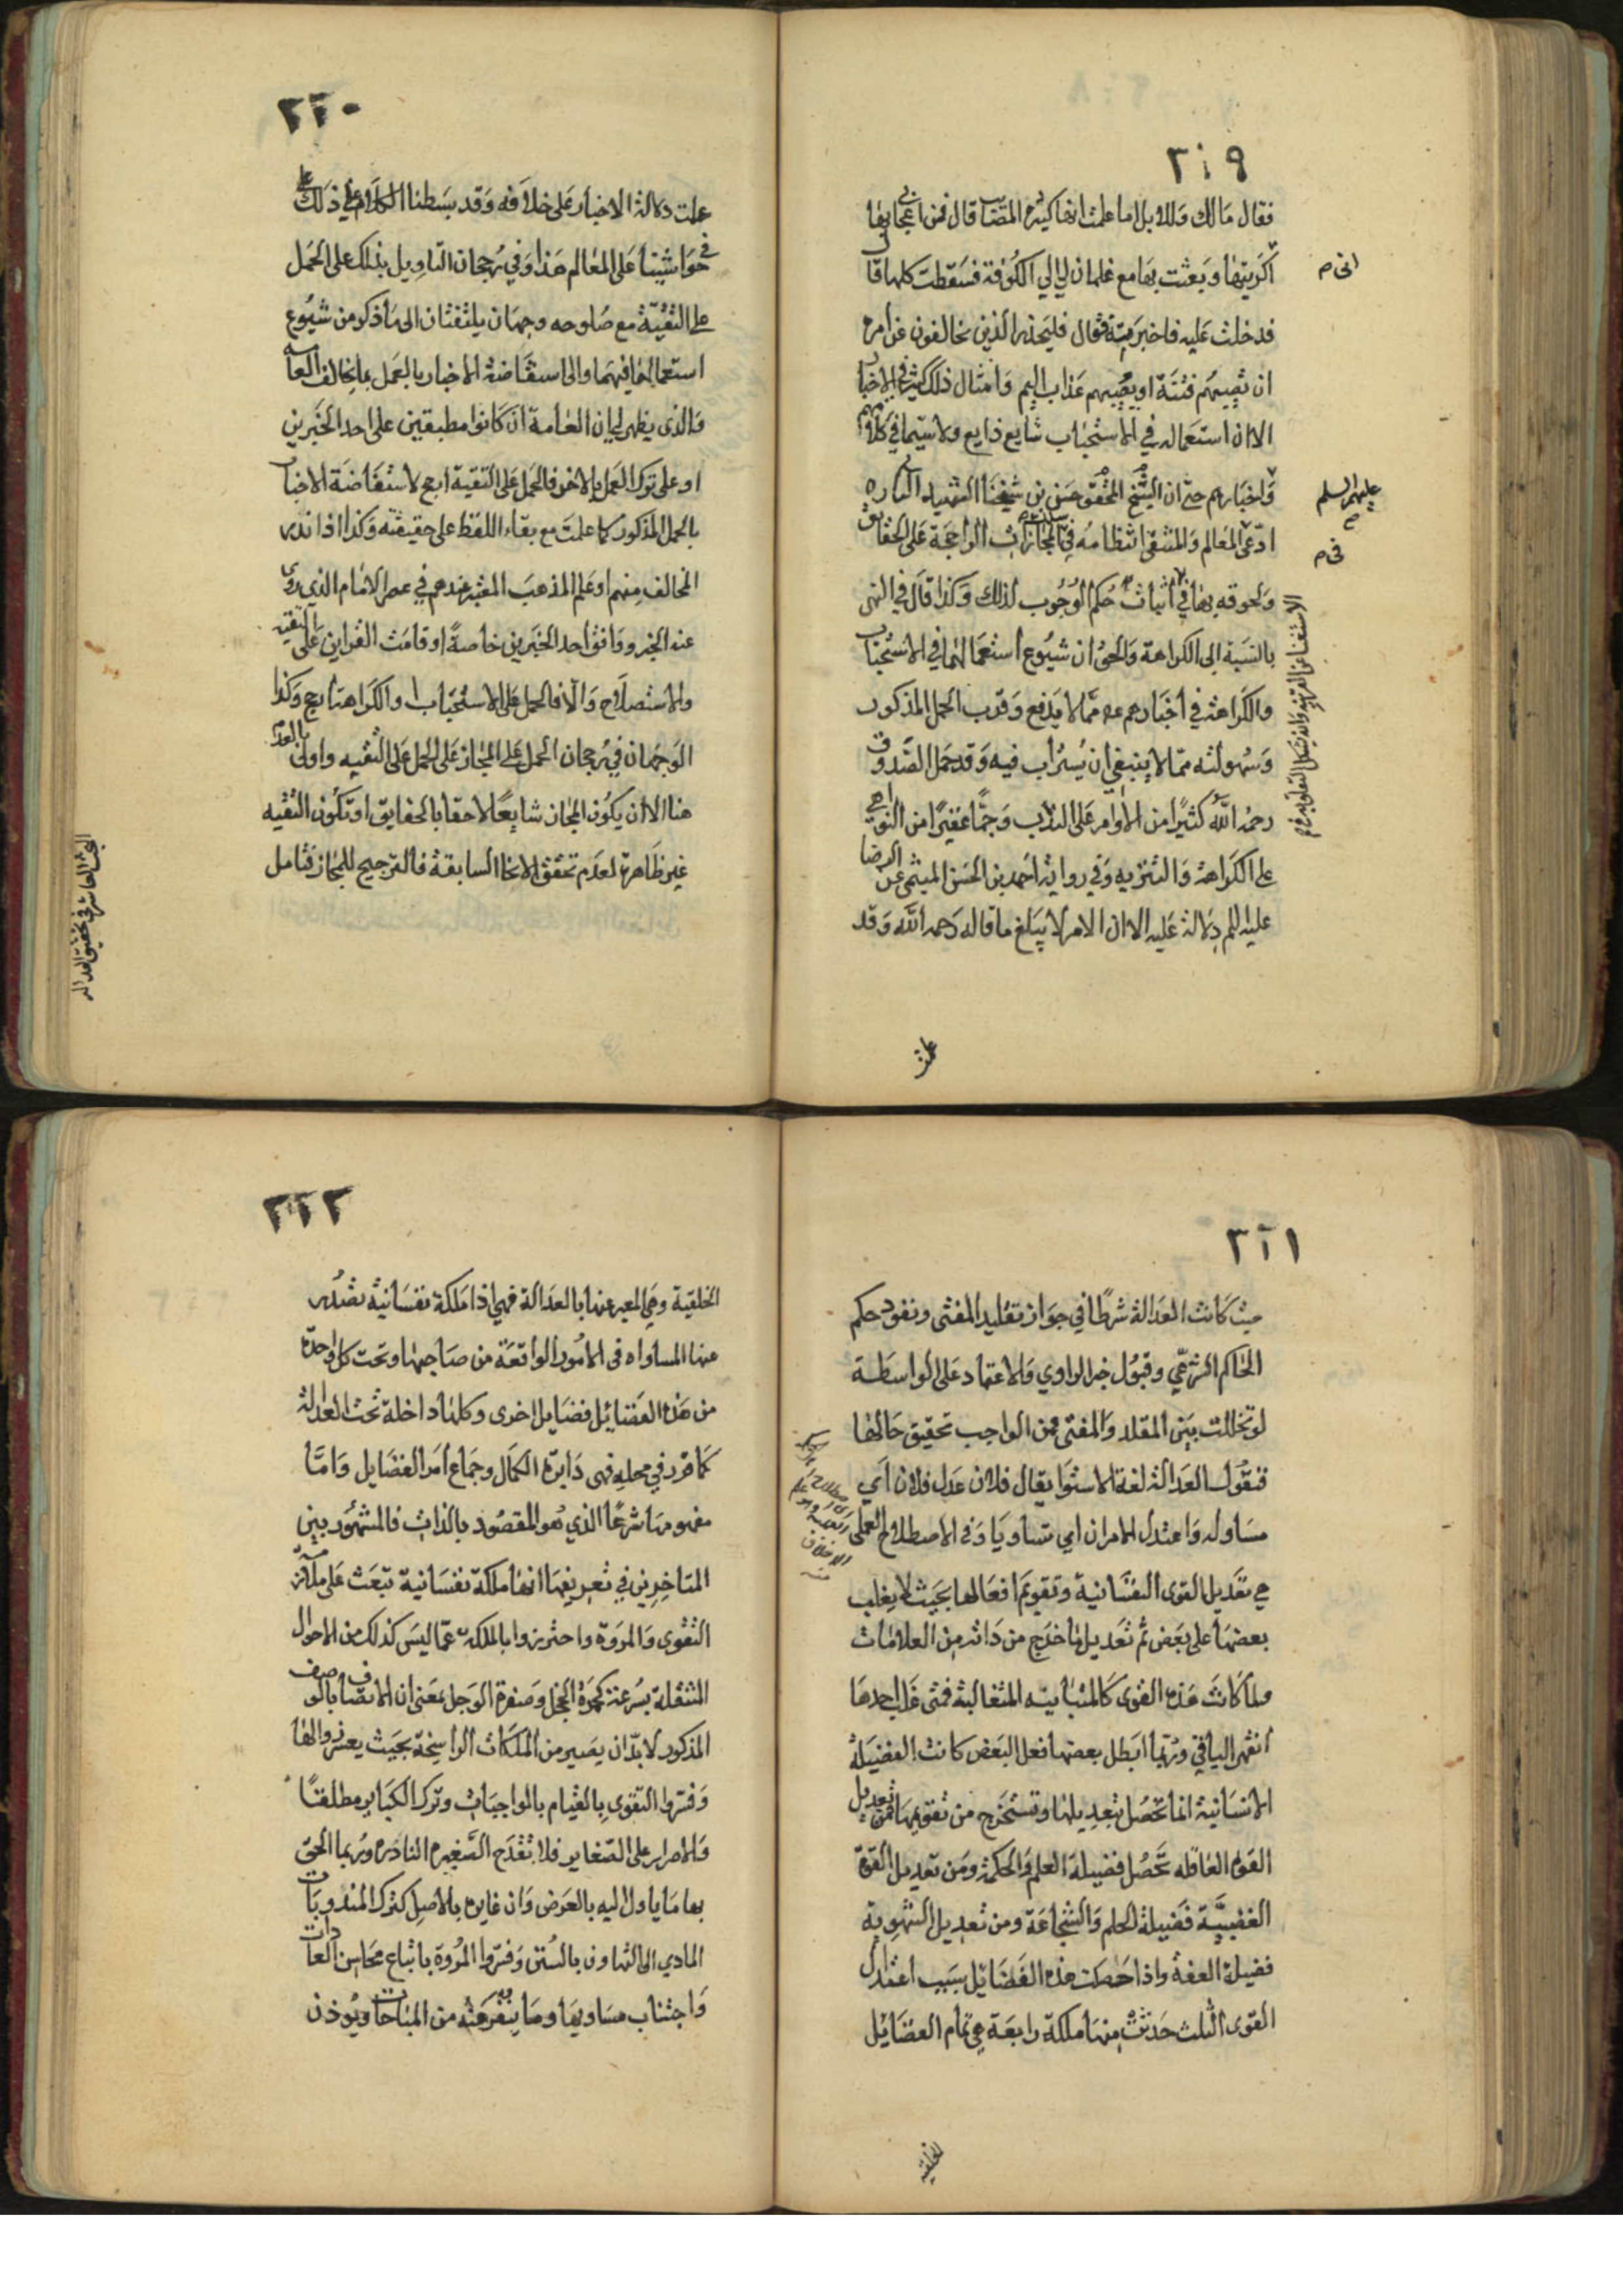 ٢١٩
فقال مالك وللابل اما علمت انها كثيرة المصائب قال فمن اعجابي بها
اكريتها وبعثت بها مع غلمان لي الي الكوفة فسقطت كلها قال
فدخلت عليه فاخبرته فقال فليحذر الذين يخالفون عن امره
ان تصيبهم فتنة او يصيبهم عذاب اليم وامثال ذلك كثير في الاخبار
الا ان استعماله في الاستحباب شايع ذايع ولا سيما في كلامهم
واخبارهم حتى ان الشيخ المحقق حسن بن شيخنا الشهيد الثاني ره
ادعى المعالم والمنتقى انتظامه في سلك المجازات الراجحة على الحقايق
ولحوقه بها في اثبات حكم الوجوب لذلك وكذا قال في النهي
بالنسبة الى الكراهة والحق ان شيوع استعمالهما في الاستحباب
والكراهة في اخبارهم عم مما لا يدفع وقرب الحمل المذكور
وسهولته مما لا ينبغي ان يستراب فيه وقد حمل الصدوق
رحمه الله كثيرا من الاوامر على الندب وجما غفيرا من النواهي
على الكراهة والتنزيه وفي رواية احمد بن الحسن الميثمي عن الرضا
عليه السلم دلالة عليه الا ان الامر لا يبلغ ما قاله رحمه الله وقد
اني م
عليهم السلم
في م
علمت
٢٢٠
علمت دلالة الاخبار على خلافه وقد بسطنا الكلام على ذلك
في حواشينا على المعالم هذا وفي رجحان التاويل بذلك على الحمل
على التقية مع صلوحه وجهان يلتفتان الى ما ذكر من شيوع
استعمالها فيهما والى استفاضة الاخبار بالعمل بما يخالف العامة
والذي يظهر لي ان العامة ان كانوا مطبقين على احد الخبرين
او على ترك العمل بالاخر فالحمل على التقية ارجح لاستفاضة الاخبار
بالحمل المذكور كما علمت مع بقاء اللفظ على حقيقته وكذا اذا ندر
المخالف منهم او علم المذهب المعتبر عندهم في عصر الامام الذي روى
عنه الخبر ووافق احد الخبرين خاصة او قامت القراين على التقيه
والاستصلاح والا فالحمل على الاستحباب والكراهة ارجح وكذا
الوجهان في رجحان الحمل على المجاز على الحمل على التقيه واولى بالعدم
هنا الا ان يكون المجاز شايعا لاحقا بالحقايق او تكون التقيه
غير ظاهرة لعدم تحقق الانحا السابقة فالترجيح للمجاز فتامل
البحث العاشر في تحقيق العداله
٢٢١
حيث كانت العدالة شرطا في جواز تقليد المفتى ونفوذ حكم
الحاكم الشرعي وقبول خبر الراوي والاعتماد على الواسطة
لو تخللت بين المقلد والمفتى فمن الواجب تحقيق حالها
فنقول العدالة لغة الاستوا يقال فلان عدل فلان اي
مساو له واعتدل الامران اي تساويا وفي الاصطلاح العملي
هي تعديل القوى النفسانية وتقويم افعالها بحيث لا يغلب
بعضها على بعض ثم تعديل ما خرج من ذاته من العلامات
ولما كانت هذه القوى كالمتباينه المتغالبة فمتى غلب احدها
انقهر الباقي وربما ابطل بعضها فعل البعض كانت الفضيلة
الانسانية انما تحصل بتعديلها وتستخرج من تقويمها فمن تعديل
القوة العاقله تحصل فضيلة العلم والحكمة ومن تعديل القوة
الغضبية فضيلة الحلم والشجاعة ومن تعديل الشهوية
فضيلة العفة واذا حصلت هذه الفضائل بسبب اعتدال
القوى الثلث حدثت منها ملكة رابعة هي تمام الفضائل
الخلقيه
٢٢٢
الخلقية وهي المعبر عنها بالعدالة فهي اذا ملكة نفسانية تصدر
عنها المساواه في الامور الواقعة من صاحبها وتحت كل واحدة
من هذه الفضائل فضايل اخرى وكلها داخلة تحت العدالة
كما قرر في محله فهي دايرة الكمال وجماع امر الفضايل واما
مفهومها شرعا الذي هو المقصود بالذات فالمشهور بين
المتاخرين في تعريفها انها ملكة نفسانية تبعث على ملازمة
التقوى والمروة واحترزوا بالملكة عما ليس كذلك من الاحوال
المنتقلة بسرعة كحمرة الخجل وصفرة الوجل بمعنى ان الاتصاف بالوصف
المذكور لا بد ان يصير من الملكات الراسخة بحيث يعسر زوالها
وفسروا التقوى بالقيام بالواجبات وترك الكباير مطلقا
والاصرار على الصغاير فلا تقدح الصغيرة النادرة وربما الحق
بها ما ياول اليه بالعرض وان غايره بالاصل كترك المندوبات
المادي الى التهاون بالسنن وفسروا المروة باتباع محاسن العادات
واجتناب مساويها وما ينفر عنه من المباحات ويوذن